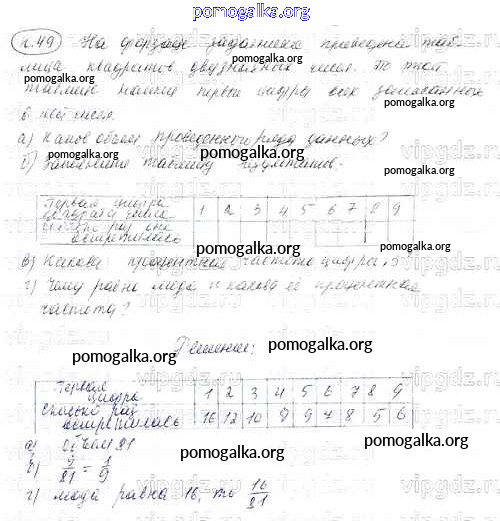 pomogalka.org
п.49 На форзаце задачника приведена таб-
лица квадратов двузначных чисел. По этой
таблице нашли первые цифры всех записанных
в ней чисел.
а) Каков объем приведенного ряда данных?
б) Заполните таблицу результатов.
Первая цифра квадрата числа 1 2 3 4 5 6 7 8 9
Сколько раз она встретилась
в) Какова процентная частота цифры 5?
г) Чему равна мода и какова её процентная
частота?
Решение:
Первая цифра 1 2 3 4 5 6 7 8 9
Сколько раз встретилась 16 12 10 9 9 7 8 5 6
а) Объем 81
в) 9/81 = 1/9
г) мода равна 16, то 16/81